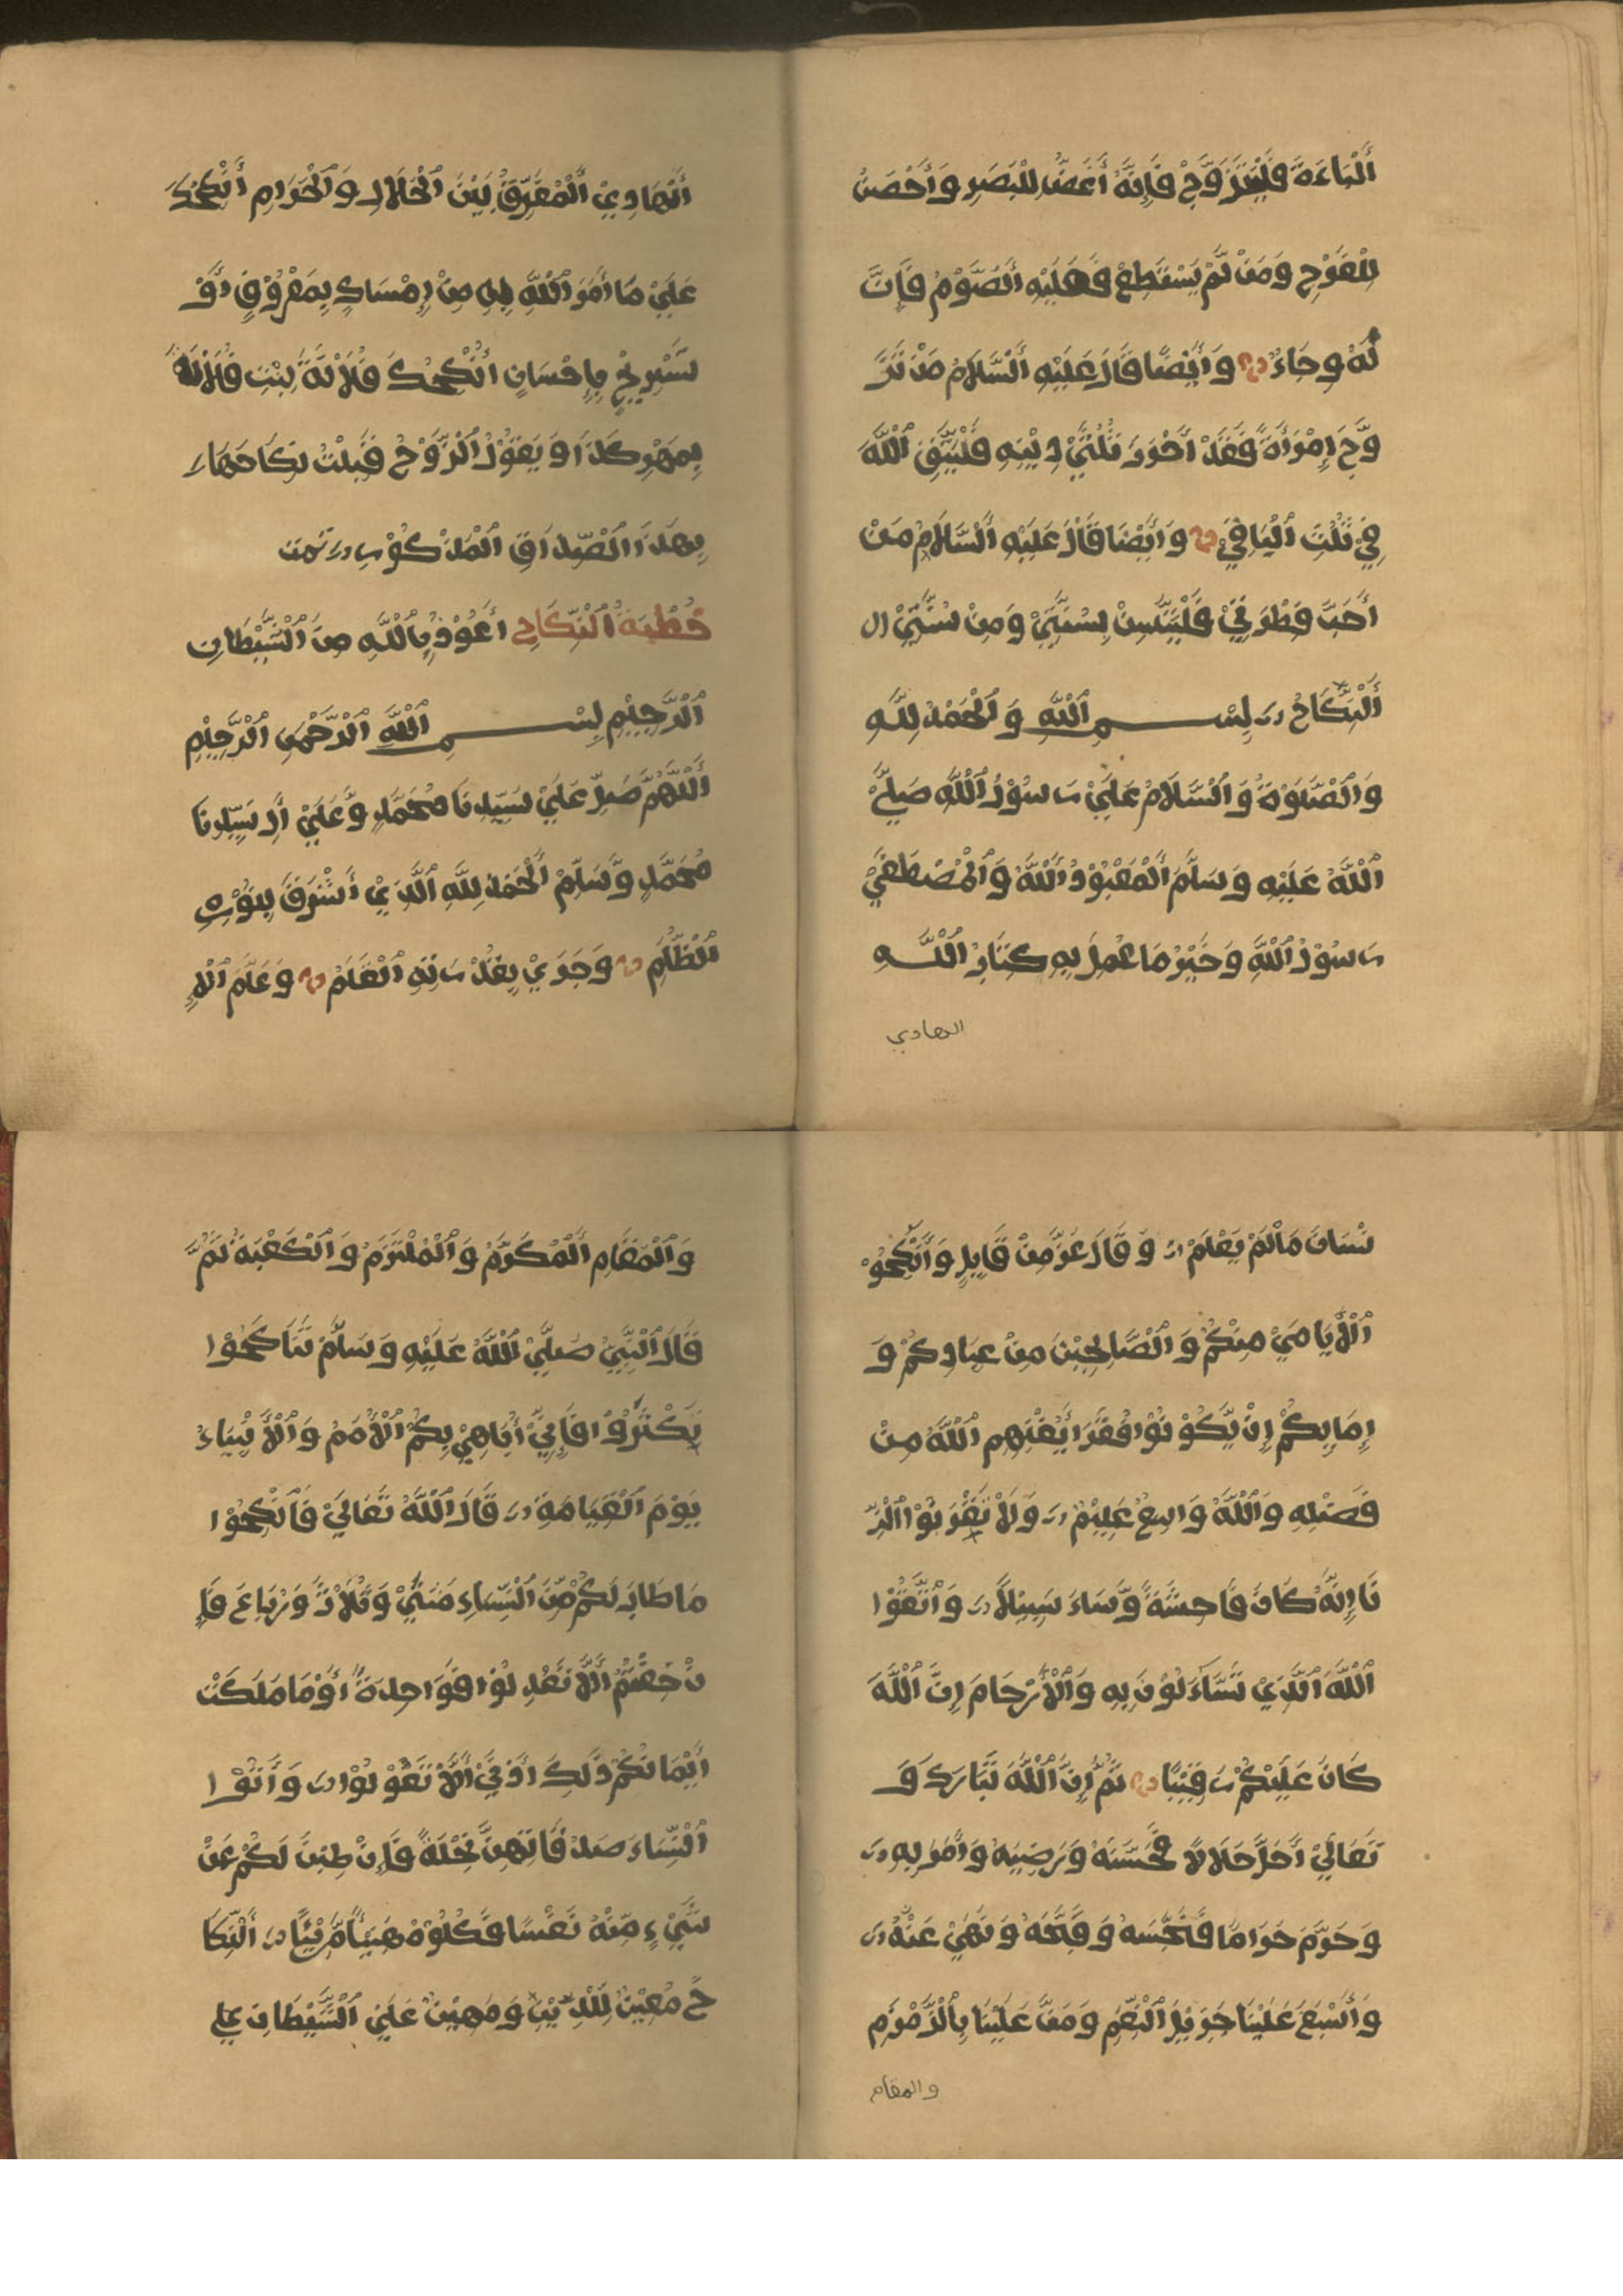 أَلْبَاءَةَ فَلْيَتَزَوَّجْ فَإِنَّهُ أَغَضُّ لِلْبَصَرِ وَأَحْصَنُ
لِلْفَرْجِ وَمَنْ لَّمْ يَسْتَطِعْ فَعَلَيْهِ أَلصَّوْمُ فَإِنَّ
لَهُ وِجَاءٌ وَأَيْضًا قَالَ عَلَيْهِ أَلسَّلَامُ مَنْ تَزَ
وَّجَ إِمْرَأَةً فَقَدْ أَحْرَزَ ثُلُثَيْ دِيْنِهِ فَلْيَتَّقِ ٱللَّهَ
فِيْ ثُلُثِ ٱلْبَاقِيْ وَأَيْضًا قَالَ عَلَيْهِ أَلسَّلَامُ مَنْ
أَحَبَّ فِطْرَتِيْ فَلْيَتَسَنَّ بِسُنَّتِيْ وَمِنْ سُنَّتِيْ ال
أَلنِّكَاحُ بِسْمِ ٱللَّهِ وَٱلْحَمْدُ لِلَّهِ
وَٱلصَّلَوٰةُ وَٱلسَّلَامُ عَلَيْ رَسُوْلُ ٱللَّهِ صَلَّيْ
ٱللَّهُ عَلَيْهِ وَسَلَّمَ أَلْمَعْبُوْدُ أَللَّهُ وَٱلْمُصْطَفَيْ
رَسُوْلُ ٱللَّهِ وَخَيْرُ مَا عُمِلَ بِهِ كِتَابُ ٱللَّهِ
الهادي
أَلْهَادِيْ أَلْمُفَرِّقُ بَيْنَ ٱلْحَلَالِ وَٱلْحَرَامِ أَنْكَحْتُكَ
عَلَيْ مَا أَمَرَ ٱللَّهُ بِهِ مِنْ إِمْسَاكٍ بِمَعْرُوْفٍ أَوْ
تَسْرِيْحٍ بِإِحْسَانٍ أَنْكَحْتُكَ فُلَانَةَ بِنْتِ فُلَانَةَ
بِمَهْرِ كَذَا وَ يَقُوْلُ ٱلزَّوْجُ قَبِلْتُ نِكَاحَهَا
بِهَذَا ٱلصِّدَاقِ ٱلْمَذْكُوْرِ تمت
خُطْبَةُ ٱلنِّكَاحِ أَعُوْذُ بِٱللَّهِ مِنَ ٱلشَّيْطَانِ
ٱلرَّجِيْمِ بِسْمِ ٱللَّهِ ٱلرَّحْمٰنِ ٱلرَّحِيْمِ
أَللَّهُمَّ صَلِّ عَلَيْ سَيِّدِنَا مُحَمَّدٍ وَّعَلَيْ أَلِ سَيِّدِنَا
مُحَمَّدٍ وَّسَلِّمْ أَلْحَمْدُ لِلَّهِ ٱلَّذِيْ أَشْرَقَ بِنُوْرِهِ
ٱلظُّلَمِ وَجَرَيْ بِقُدْرَتِهِ ٱلْقَلَمْ وَعَلَّمَ ٱلْإِ
نْسَانَ مَا لَمْ يَعْلَمْ وَقَالَ عَزَّ مِنْ قَايِلٍ وَأَنْكِحُوْ
ٱلْأَيَامَيْ مِنْكُمْ وَٱلصَّالِحِيْنَ مِنْ عِبَادِكُمْ وَ
إِمَايِكُمْ إِنْ يَّكُوْنُوْا فُقَرَا يُغْنِهِمِ ٱللَّهُ مِنْ
فَضْلِهِ وَٱللَّهُ وَاسِعٌ عَلِيْمٌ وَلَا تَقْرَبُوْا ٱلزِّ
نَا إِنَّهُ كَانَ فَاحِشَةً وَّسَاءَ سَبِيْلًا وَٱتَّقُوْا
ٱللَّهَ ٱلَّذِيْ تَسَّاءَلُوْنَ بِهِ وَٱلْأَرْحَامَ إِنَّ ٱللَّهَ
كَانَ عَلَيْكُمْ رَقِيْبًا ثُمَّ إِنَّ ٱللَّهَ تَبَارَكَ وَ
تَعَالَيْ أَحَلَّ حَلَالًا فَحَسَّنَهُ وَرَضِيَهُ وَأَمَرَ بِهِ
وَحَرَّمَ حَرَامًا فَنَجَّسَهُ وَقَبَّحَهُ وَنَهَيْ عَنْهُ
وَأَسْبَغَ عَلَيْنَا جَزِيْلَ ٱلنِّعَمِ وَمَنَّ عَلَيْنَا بِٱلزَّمْزَمِ
والمقام
وَٱلْمَقَامِ ٱلْمُكَرَّمُ وَٱلْمُلْتَزَمُ وَٱلْكَعْبَةَ ثُمَّ
قَالَ ٱلنَّبِيُّ صَلَّيْ ٱللَّهُ عَلَيْهِ وَسَلَّمْ تَنَاكَحُوْا
تَكْثُرُوْا فَإِنِّيْ أُبَاهِيْ بِكُمْ ٱلْأُمَمُ وَٱلْأَنْبِيَاءُ
يَوْمَ ٱلْقِيَامَةِ قَالَ ٱللَّهُ تَعَالَيْ فَٱنْكِحُوْا
مَا طَابَ لَكُمْ مِّنَ ٱلنِّسَاءِ مَثْنَيْ وَثُلَاثَ وَرُبَاعَ فَإِ
نْ خِفْتُمْ أَلَّا تَعْدِلُوْا فَوَاحِدَةً أَوْ مَا مَلَكَتْ
أَيْمَانُكُمْ ذَلِكَ أَدْنَيْ أَلَّا تَعُوْلُوْا وَأَتُوْا
ٱلنِّسَاءَ صَدُقَاتِهِنَّ نِحْلَةً فَإِنْ طِبْنَ لَكُمْ عَنْ
شَيْءٍ مِّنْهُ نَفْسًا فَكُلُوْهُ هَنِيْئًا مَّرِيْئًا أَلنِّكَا
حُ مُعِيْنٌ لِلدِّيْنِ وَمُهِيْنٌ عَلَيْ ٱلشَّيْطَانِ